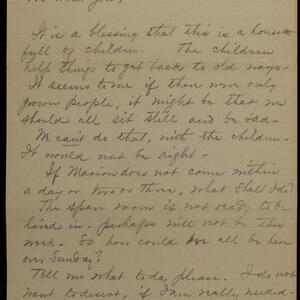 It is a blessing that this is a house
full of children. The children
help things to get back to old ways.
It seems to me if there were only
grown people, it might be that we
should all sit still and be sad.
We can't do that, with the children.
It would not be right.
If Marion does not come within
a day or two or three, what shall I do?
The spare room is not ready to be
lived in. perhaps will not be this
week. So how could we all be here
over Sunday?
Tell me what to do, please. I do not
want to desert, if I am really needed.